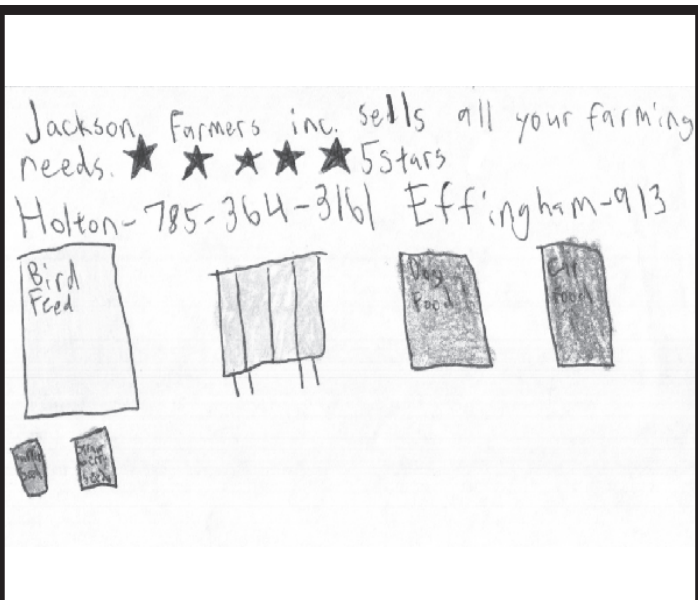 Jackson Farmers inc. sells all your farming
needs. 5stars
Holton-785-364-3161 Effingham-913
Bird
Feed
Dog
Food
Food